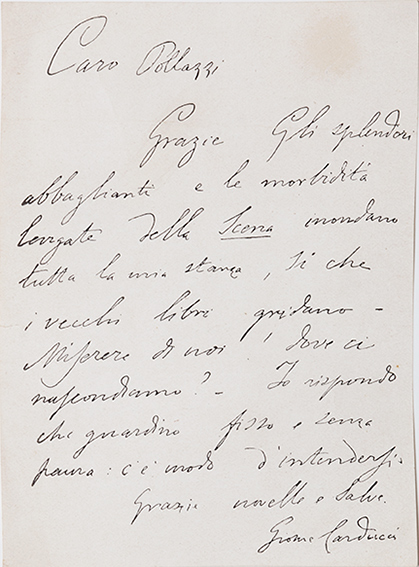 Caro Pollazzi
Grazie Gli splendori
abbaglianti e le morbidità
levigate della Scena inondano
tutta la mia stanza, sì che
i vecchi libri gridano –
Miserere di noi! dove ci
nascondiamo? – Io rispondo
che guardino fisso e senza
paura: c'è modo d'intendersi.
Grazie novelle e salve.
Giosue Carducci